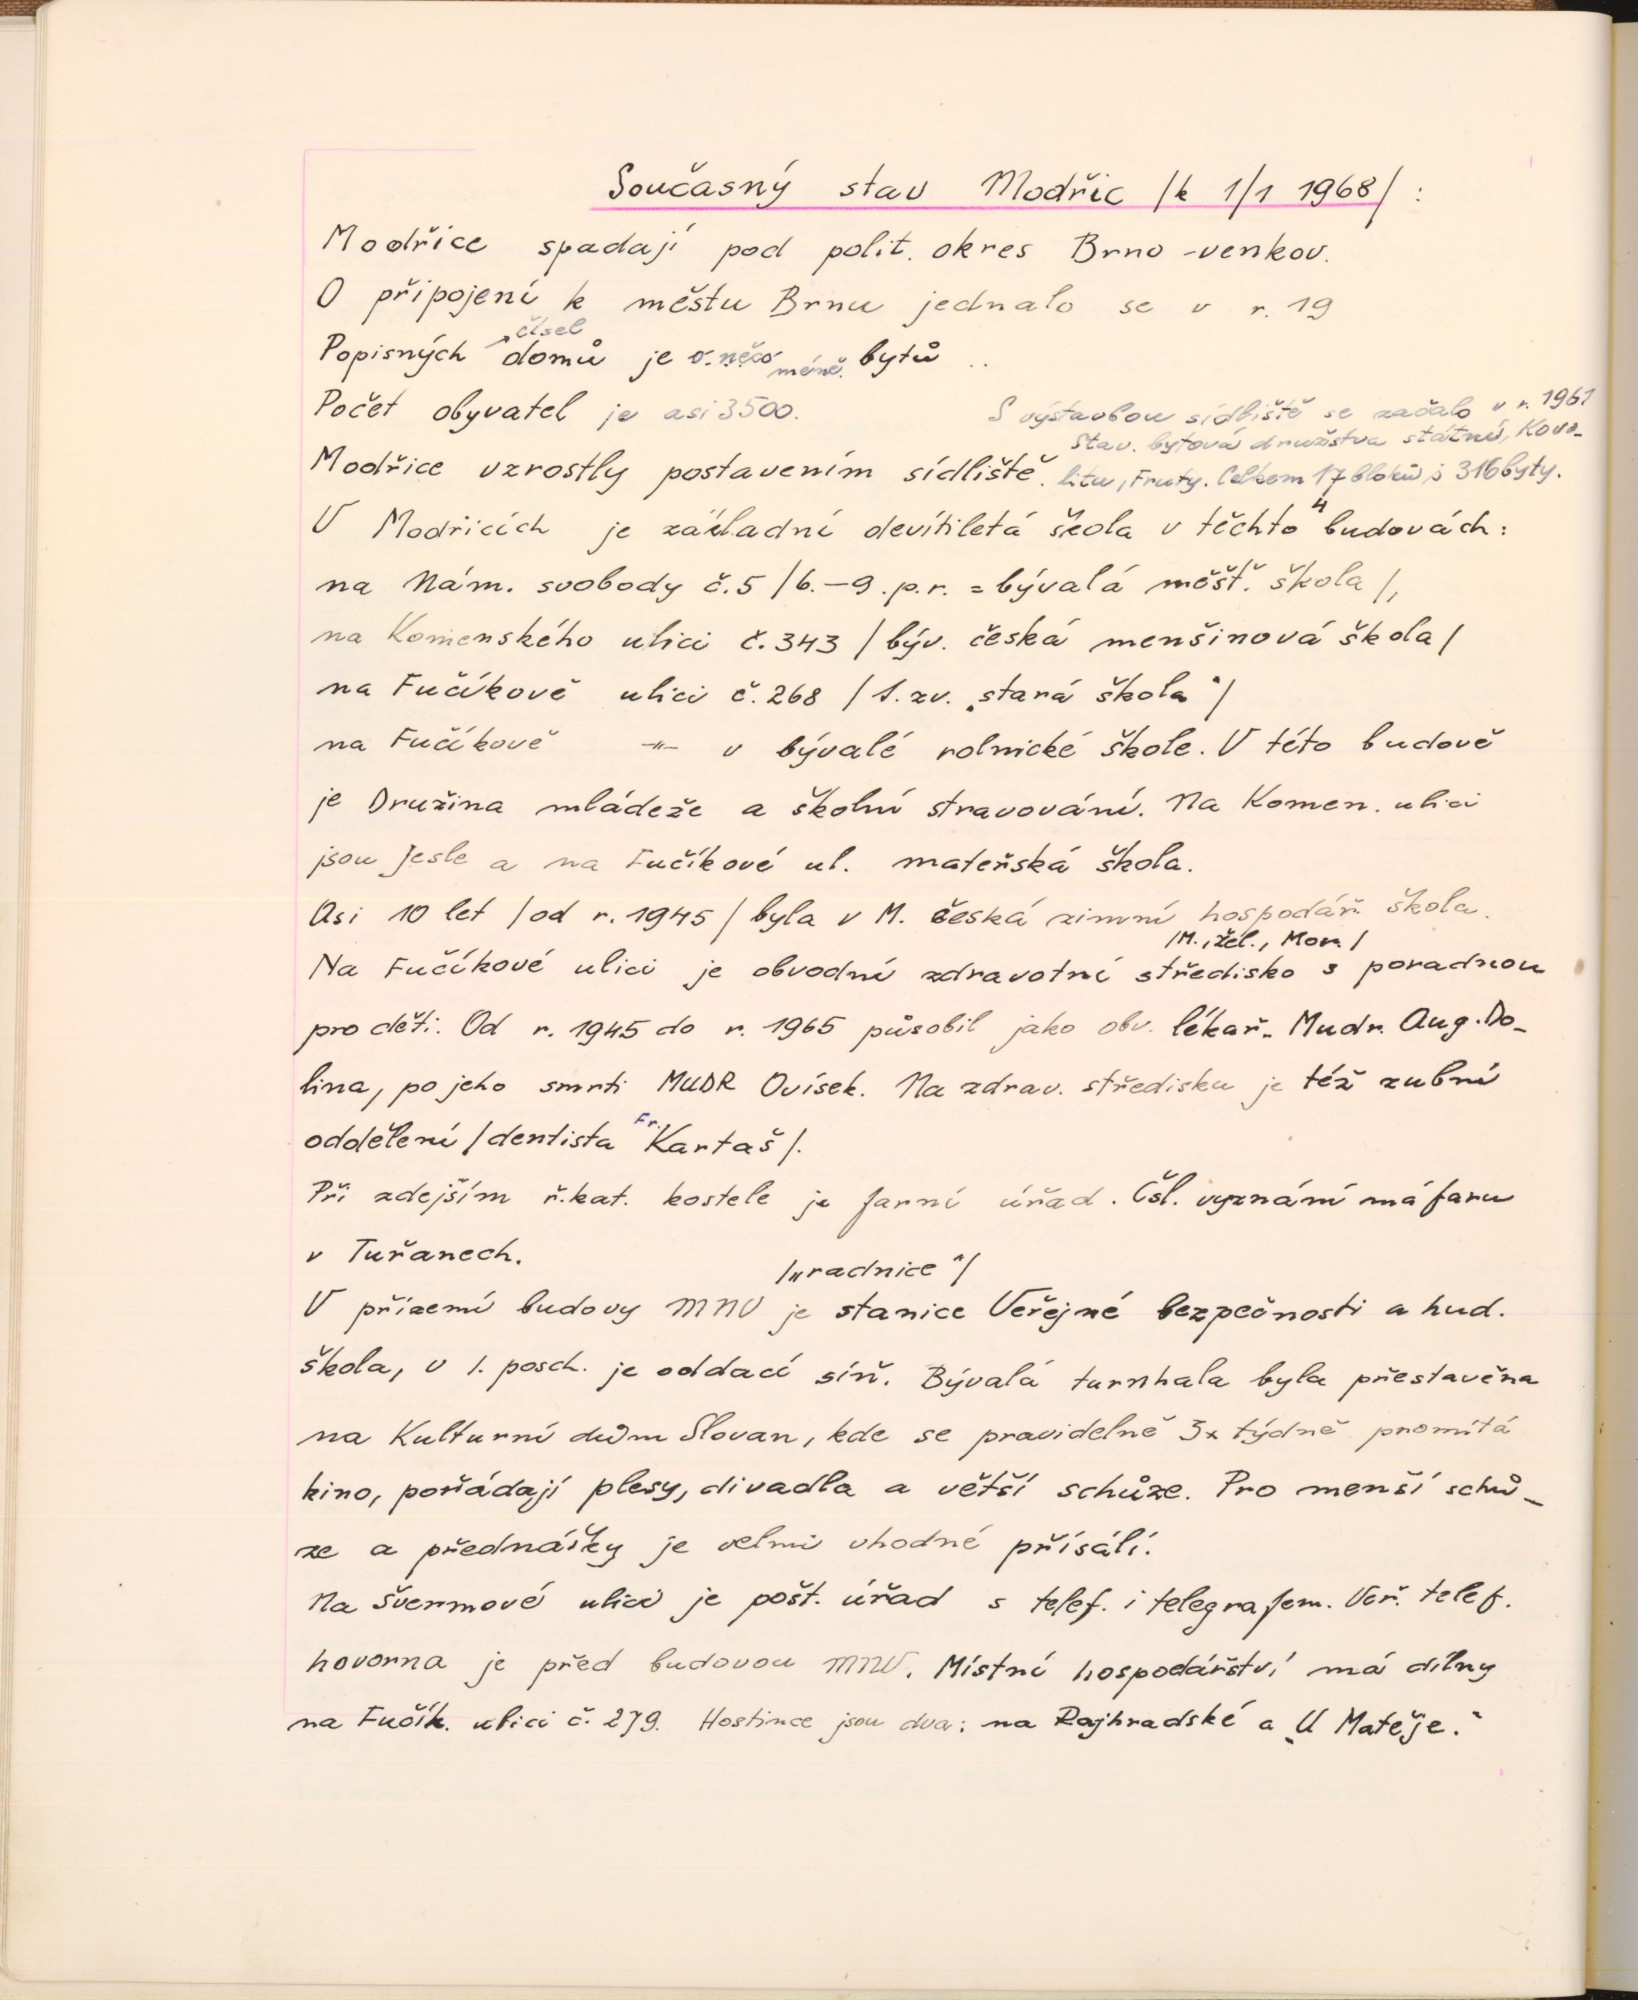 Současný stav Modřic /k 1/1 1968/ :
Modřice spadají pod polit. okres Brno-venkov.
O připojení k městu Brnu jednalo se v r. 19
čísel
Popisných domů je o něco méně bytů ..
Počet obyvatel je asi 3500. S výstavbou sídliště se začalo v r. 1961
Stav. bytová družstva státní, Kovo-
Modřice vzrostly postavením sídliště. litu, Fruty. Celkem 17 bloků s 316 byty.
V Modřicích je základní devítiletá škola v těchto 4 budovách:
na Nám. svobody č.5 /6.-9.p.r. = bývalá měšť. škola/,
na Komenského ulici č.343 /býv. česká menšinová škola/
na Fučíkově ulici č.268 /t.zv. „stará škola“/
na Fučíkově -"- v bývalé rolnické škole. V této budově
je Družina mládeže a školní stravování. Na Komen. ulici
jsou Jesle a na Fučíkové ul. mateřská škola.
Asi 10 let /od r.1945/ byla v M. česká zimní hospodář. škola.
/M., Žel., Mor./
Na Fučíkové ulici je obvodní zdravotní středisko s poradnou
pro děti. Od r. 1945 do r. 1965 působil jako obv. lékař. Mudr. Aug. Do-
lina, po jeho smrti MUDR Ovísek. Na zdrav. středisku je též zubní
oddělení /dentista Fr. Kartaš/.
Při zdejším ř.kat. kostele je farní úřad. Čsl. vyznání má faru
v Tuřanech.
/„radnice“/
V přízemí budovy MNV je stanice Veřejné bezpečnosti a hud.
škola, v 1. posch. je oddací síň. Bývalá turnhala byla přestavěna
na Kulturní dům Slovan, kde se pravidelně 3x týdně promítá
kino, pořádají plesy, divadla a větší schůze. Pro menší schů-
ze a přednášky je velmi vhodné přísálí.
Na Švermové ulici je pošt. úřad s telef. i telegrafem. Veř. telef.
hovorna je před budovou MNV. Místní hospodářství má dílny
na Fučík. ulici č. 279. Hostince jsou dva: na Rajhradské a „U Matěje.“